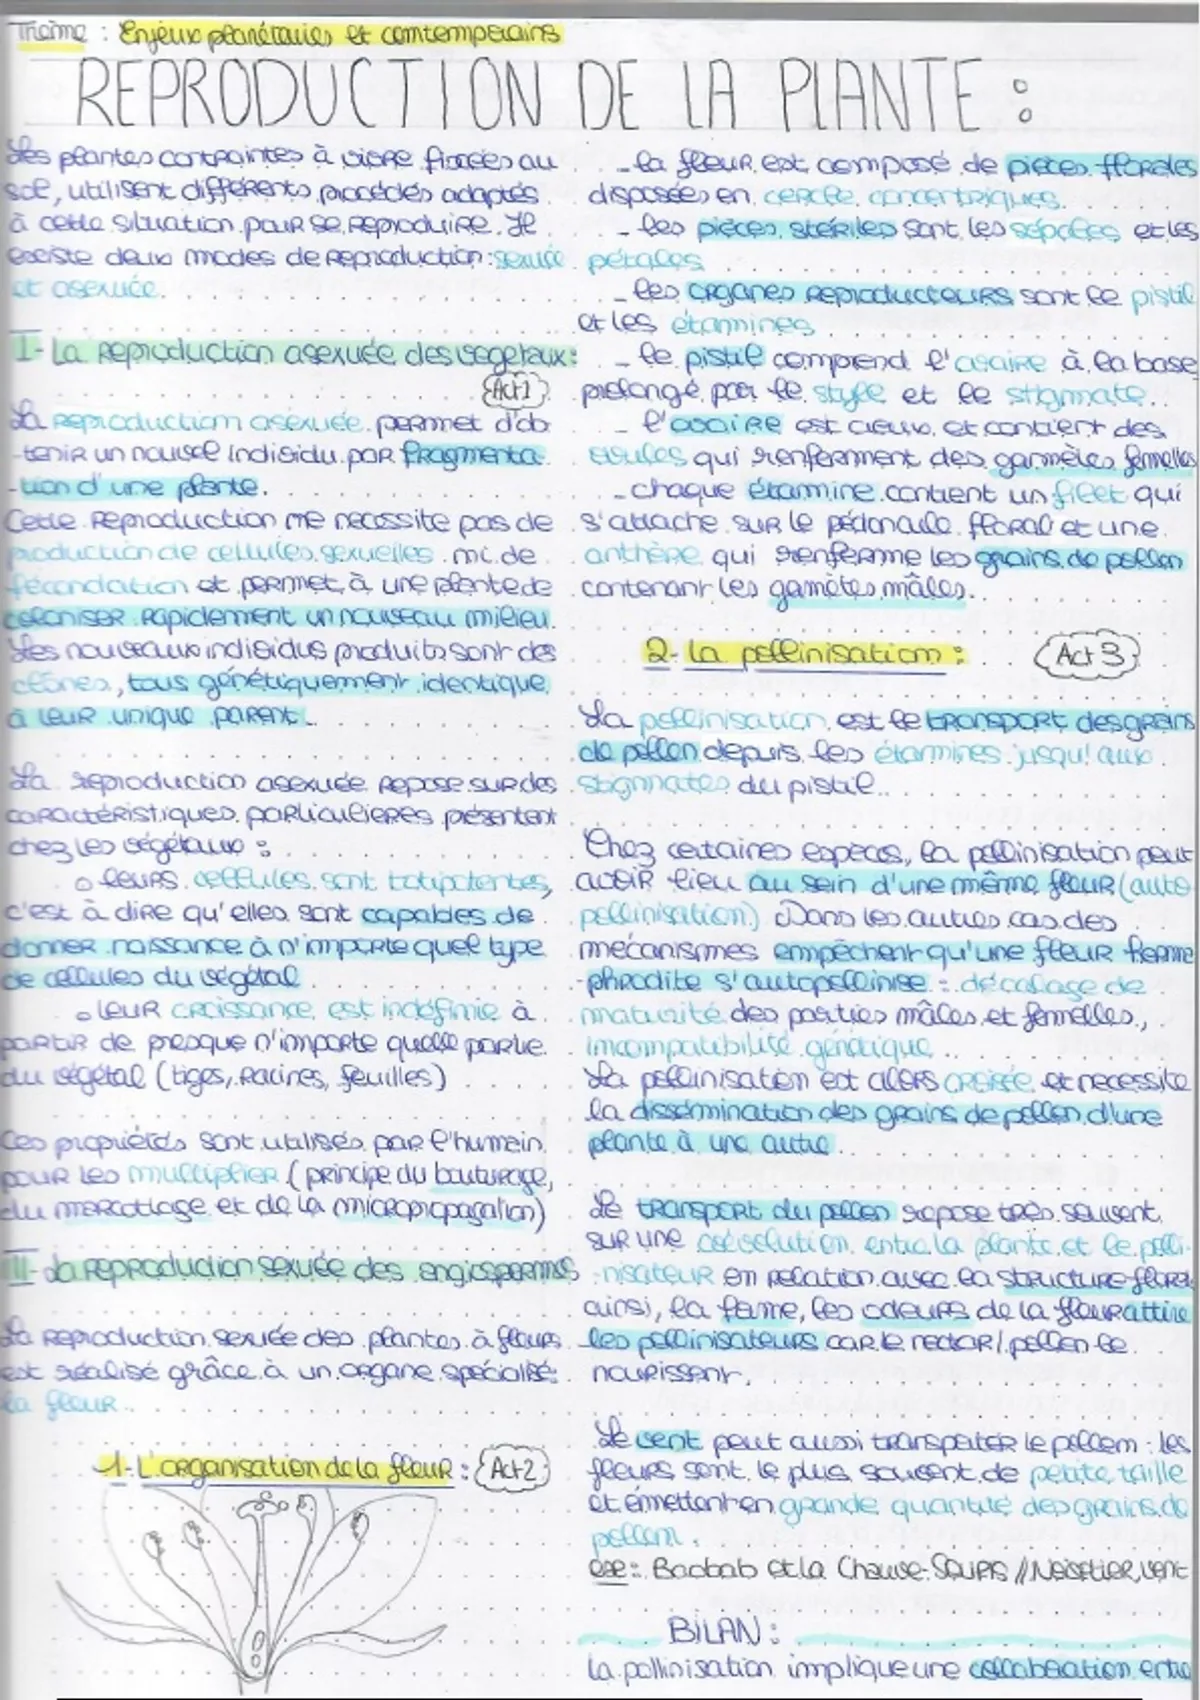 Thème : Enjeux planétaires et comtemporains
REPRODUCTION DE LA PLANTE :
Les plantes contraintes à vivre fixées au
sol, utilisent différents procédés adaptés
à cette situation pour se reproduire. Il
existe deux modes de reproduction : sexuée
et asexuée.
I- La reproduction asexuée des vegetaux :
Act 1
La reproduction asexuée permet d'ob
-tenir un nouvel individu par fragmenta
-tion d'une plante.
Cette reproduction ne necessite pas de
production de cellules sexuelles ni de
fécondation et permet à une plante de
coloniser rapidement un nouveau milieu.
Les nouveaux individus produits sont des
clônes, tous génétiquement identique
à leur unique parent.
La reproduction asexuée repose sur des
caractéristiques particulieres présentent
chez les végétaux :
o leurs cellules sont totipotentes,
c'est à dire qu'elles sont capables de
donner naissance à n'importe quel type
de cellules du végétal
o leur croissance est indéfinie à
partir de presque n'importe quelle partie
du végétal (tiges, racines, feuilles)
Ces propriétés sont utilisés par l'humain
pour les multiplier (principe du bouturage,
du marcottage et de la micropropagation)
II- La reproduction sexuée des angiospermes
La reproduction sexuée des plantes à fleurs
est réalisé grâce à un organe spécialisé :
la fleur.
1- L'organisation de la fleur : Act 2
- la fleur est composé de pièces florales
disposées en cercle concentriques.
- les pièces stériles sont les sépales et les
pétales
- les organes reproducteurs sont le pistil
et les étamines
- le pistil comprend l'ovaire à la base
prolongé par le style et le stigmate.
- l'ovaire est creux et contient des
ovules qui renferment des gamètes femelles
- chaque étamine contient un filet qui
s'attache sur le pédoncule floral et une
anthère qui renferme les grains de pollen
contenant les gamètes mâles.
2- La pollinisation : Act 3
La pollinisation est le transport des grains
de pollen depuis les étamines jusqu'aux
stigmates du pistil.
Chez certaines espèces, la pollinisation peut
avoir lieu au sein d'une même fleur (auto
pollinisation) Dans les autres cas des
mécanismes empêchent qu'une fleur herma
-phrodite s'autopollinise : décalage de
maturité des parties mâles et femelles,
incompatibilité génétique.
La pollinisation est alors croisée et necessite
la dissémination des grains de pollen d'une
plante à une autre.
Le transport du pollen repose très souvent
sur une coévolution entre la plante et le polli-
-nisateur en relation avec la structure floral
ainsi, la forme, les odeurs de la fleur attire
les pollinisateurs car le nectar / pollen le
nourissent.
Le vent peut aussi transporter le pollem : les
fleurs sont le plus souvent de petite taille
et émettent en grande quantité des grains de
pollen.
ex : Baobab et la Chauve-Souris // Noisetier, vent
BILAN :
la pollinisation implique une collaboration entre